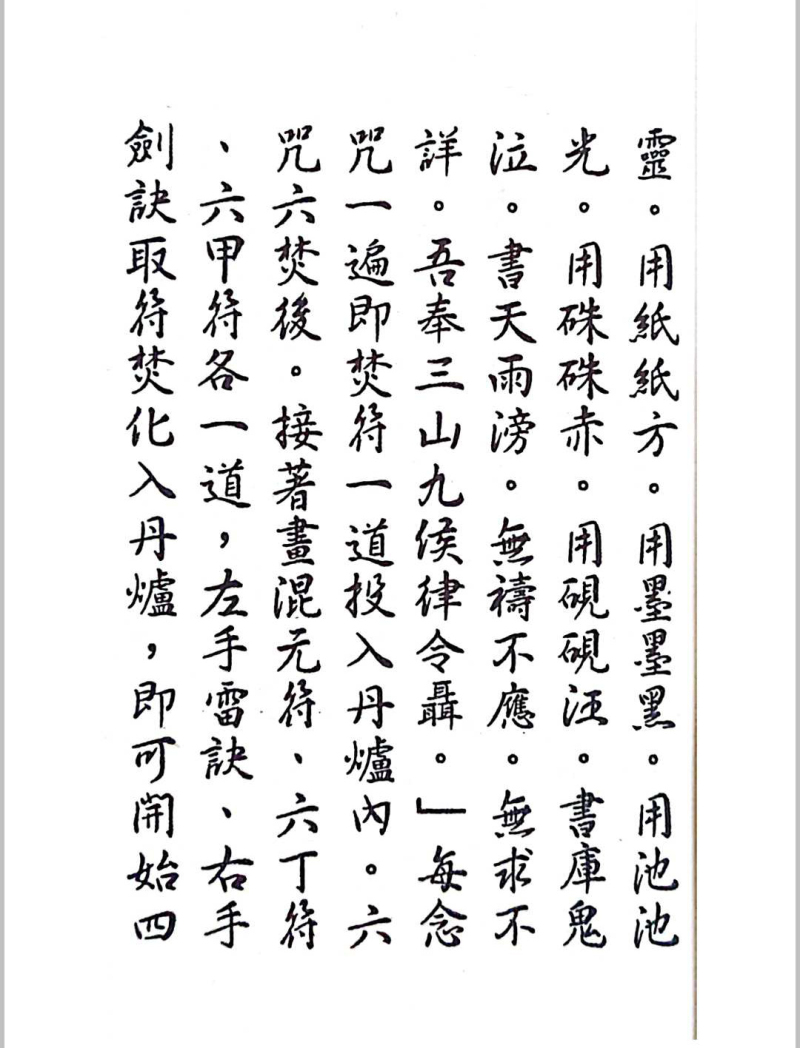 靈。用紙紙方。用墨墨黑。用池池
光。用硃硃赤。用硯硯汪。書庫鬼
泣。書天雨滂。無禱不應。無求不
詳。吾奉三山九侯律令聶。」每念
咒一遍即焚符一道投入丹爐內。六
咒六焚後。接著畫混元符、六丁符
、六甲符各一道，左手雷訣、右手
劍訣取符焚化入丹爐，即可開始四